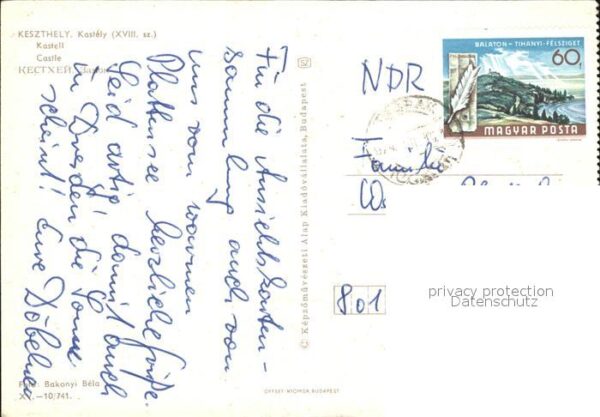 KESZTHELY. Kastély (XVIII. sz.)
Kastell
Castle
КЕСТХЕЙ
Für die Ansichtskarten-
sammlung auch von
uns vom warmen
Plattensee herzliche Grüße.
Seid artig, damit auch
in Dresden die Sonne
scheint! Eure Döbelner
Foto: Bakonyi Béla
XV.-10,741.
© Képzőművészeti Alap Kiadóvállalata, Budapest
OFFSET-NYOMDA BUDAPEST
BALATON-TIHANYI-FÉLSZIGET
60f
MAGYAR POSTA
NDR
Familie
801
privacy protection
Datenschutz